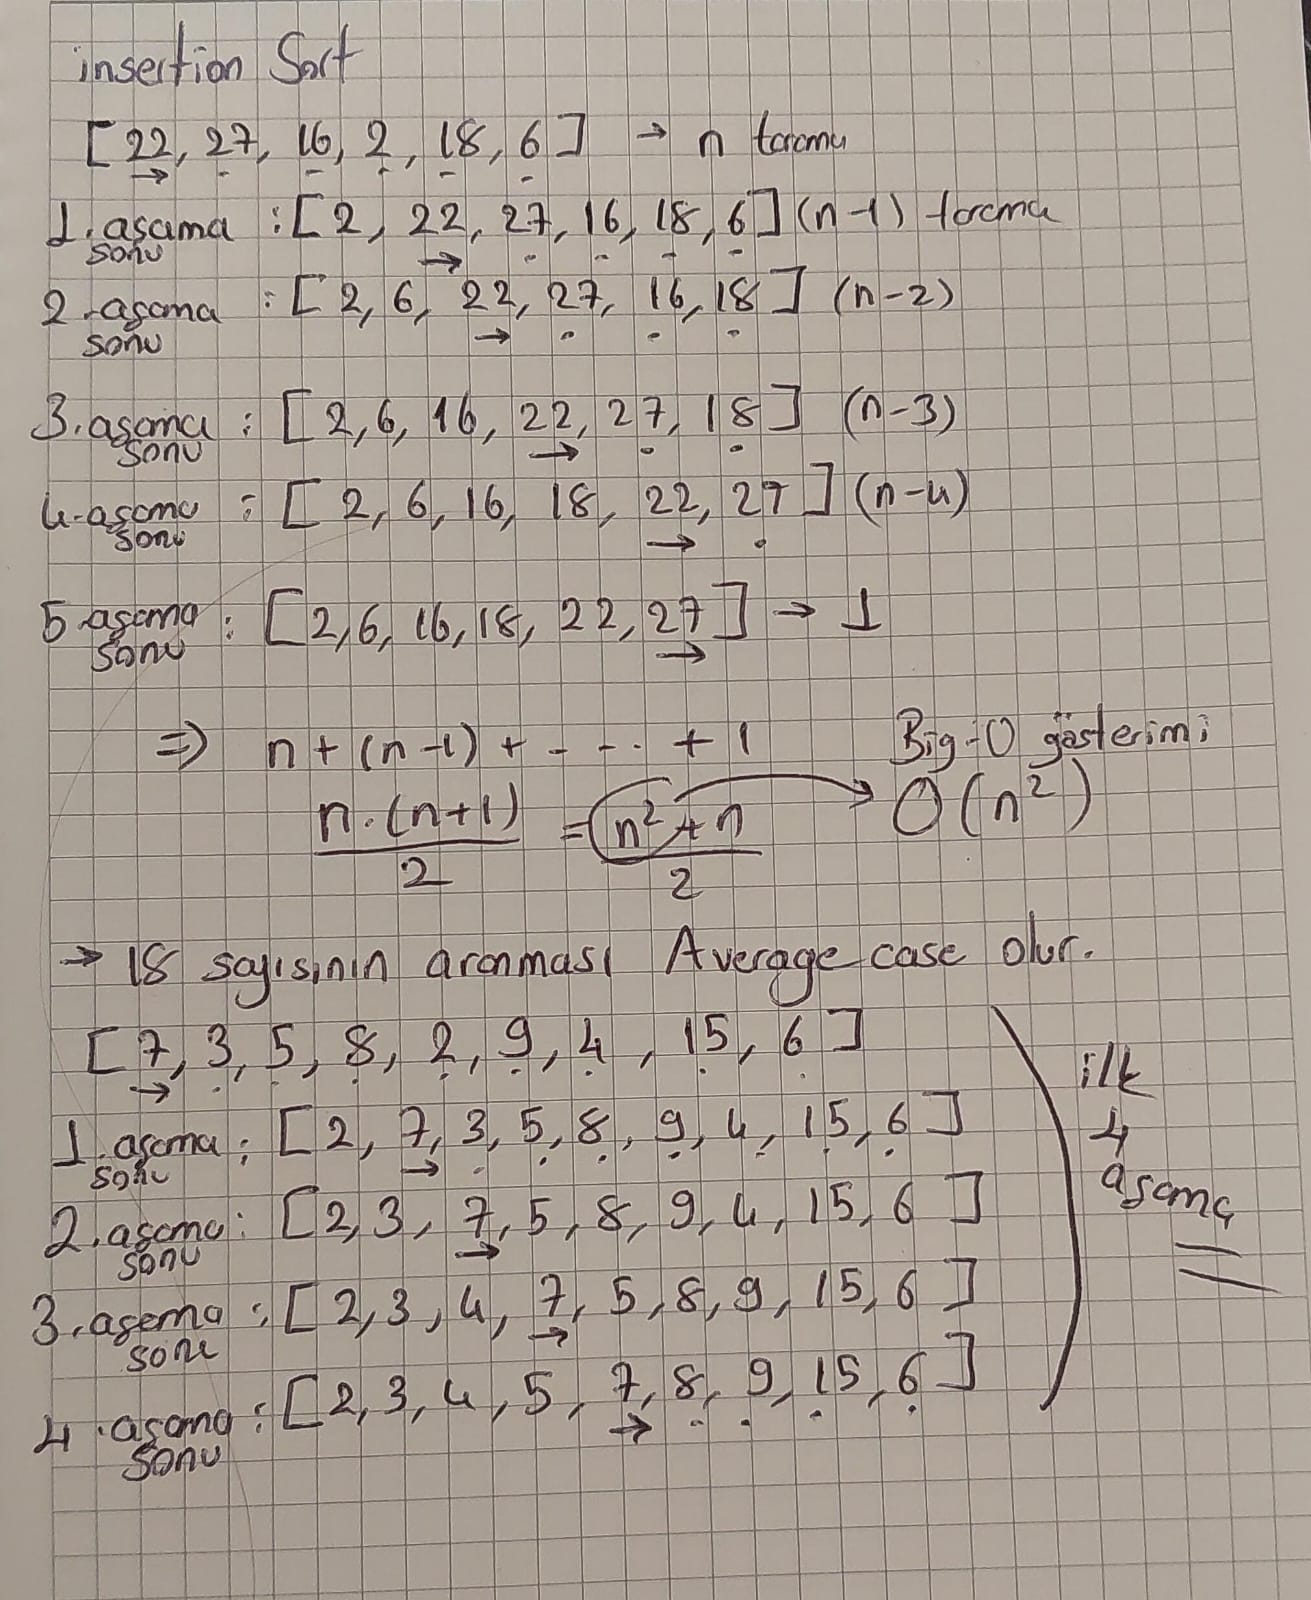 insertion Sort
[22, 27, 16, 2, 18, 6] → n tarama
1. aşama sonu : [2, 22, 27, 16, 18, 6] (n-1) tarama
2. aşama sonu : [2, 6, 22, 27, 16, 18] (n-2)
3. aşama sonu : [2, 6, 16, 22, 27, 18] (n-3)
4. aşama sonu : [2, 6, 16, 18, 22, 27] (n-4)
5. aşama sonu : [2, 6, 16, 18, 22, 27] → 1
⇒ n + (n-1) + - - .. + 1 Big-O gösterimi
n.(n+1)/2 = n²+n/2 → O(n²)
→ 18 sayısının aranması Average case olur.
[7, 3, 5, 8, 2, 9, 4, 15, 6]
1. aşama sonu : [2, 7, 3, 5, 8, 9, 4, 15, 6]
2. aşama sonu : [2, 3, 7, 5, 8, 9, 4, 15, 6]
3. aşama sonu : [2, 3, 4, 7, 5, 8, 9, 15, 6]
4. aşama sonu : [2, 3, 4, 5, 7, 8, 9, 15, 6]
ilk
4
aşama